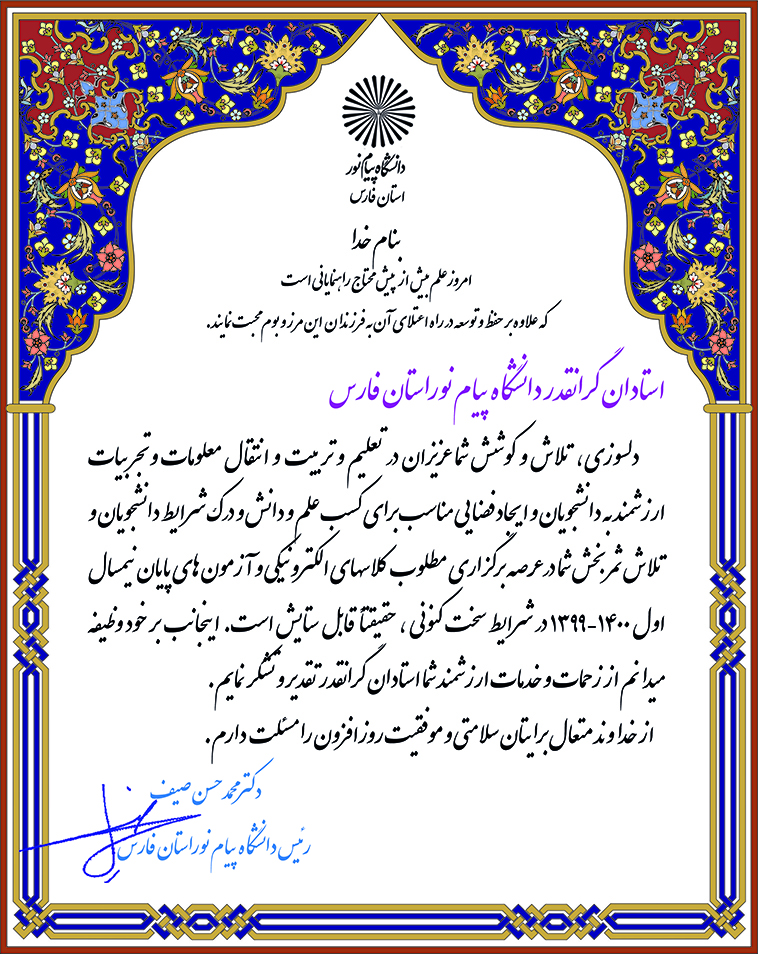 دانشگاه پیام نور
استان فارس
بنام خدا
امروز علم بیش از پیش محتاج راهنمایانی است
که علاوه بر حفظ و توسعه در راه اعتلای آن به فرزندان این مرز و بوم محبت نمایند.
استادان گرانقدر دانشگاه پیام نور استان فارس
دلسوزی، تلاش و کوشش شما عزیزان در تعلیم و تربیت و انتقال معلومات و تجربیات
ارزشمند به دانشجویان و ایجاد فضایی مناسب برای کسب علم و دانش و درک شرایط دانشجویان و
تلاش ثمربخش شما در عرصه برگزاری مطلوب کلاسهای الکترونیکی و آزمون های پایان نیمسال
اول ۱۴۰۰-۱۳۹۹ در شرایط سخت کنونی، حقیقتاً قابل ستایش است. اینجانب بر خود وظیفه
میدانم از زحمات و خدمات ارزشمند شما استادان گرانقدر تقدیر و تشکر نمایم.
از خداوند متعال برایتان سلامتی و موفقیت روز افزون را مسئلت دارم.
دکتر محمد حسن صیف
رئیس دانشگاه پیام نور استان فارس